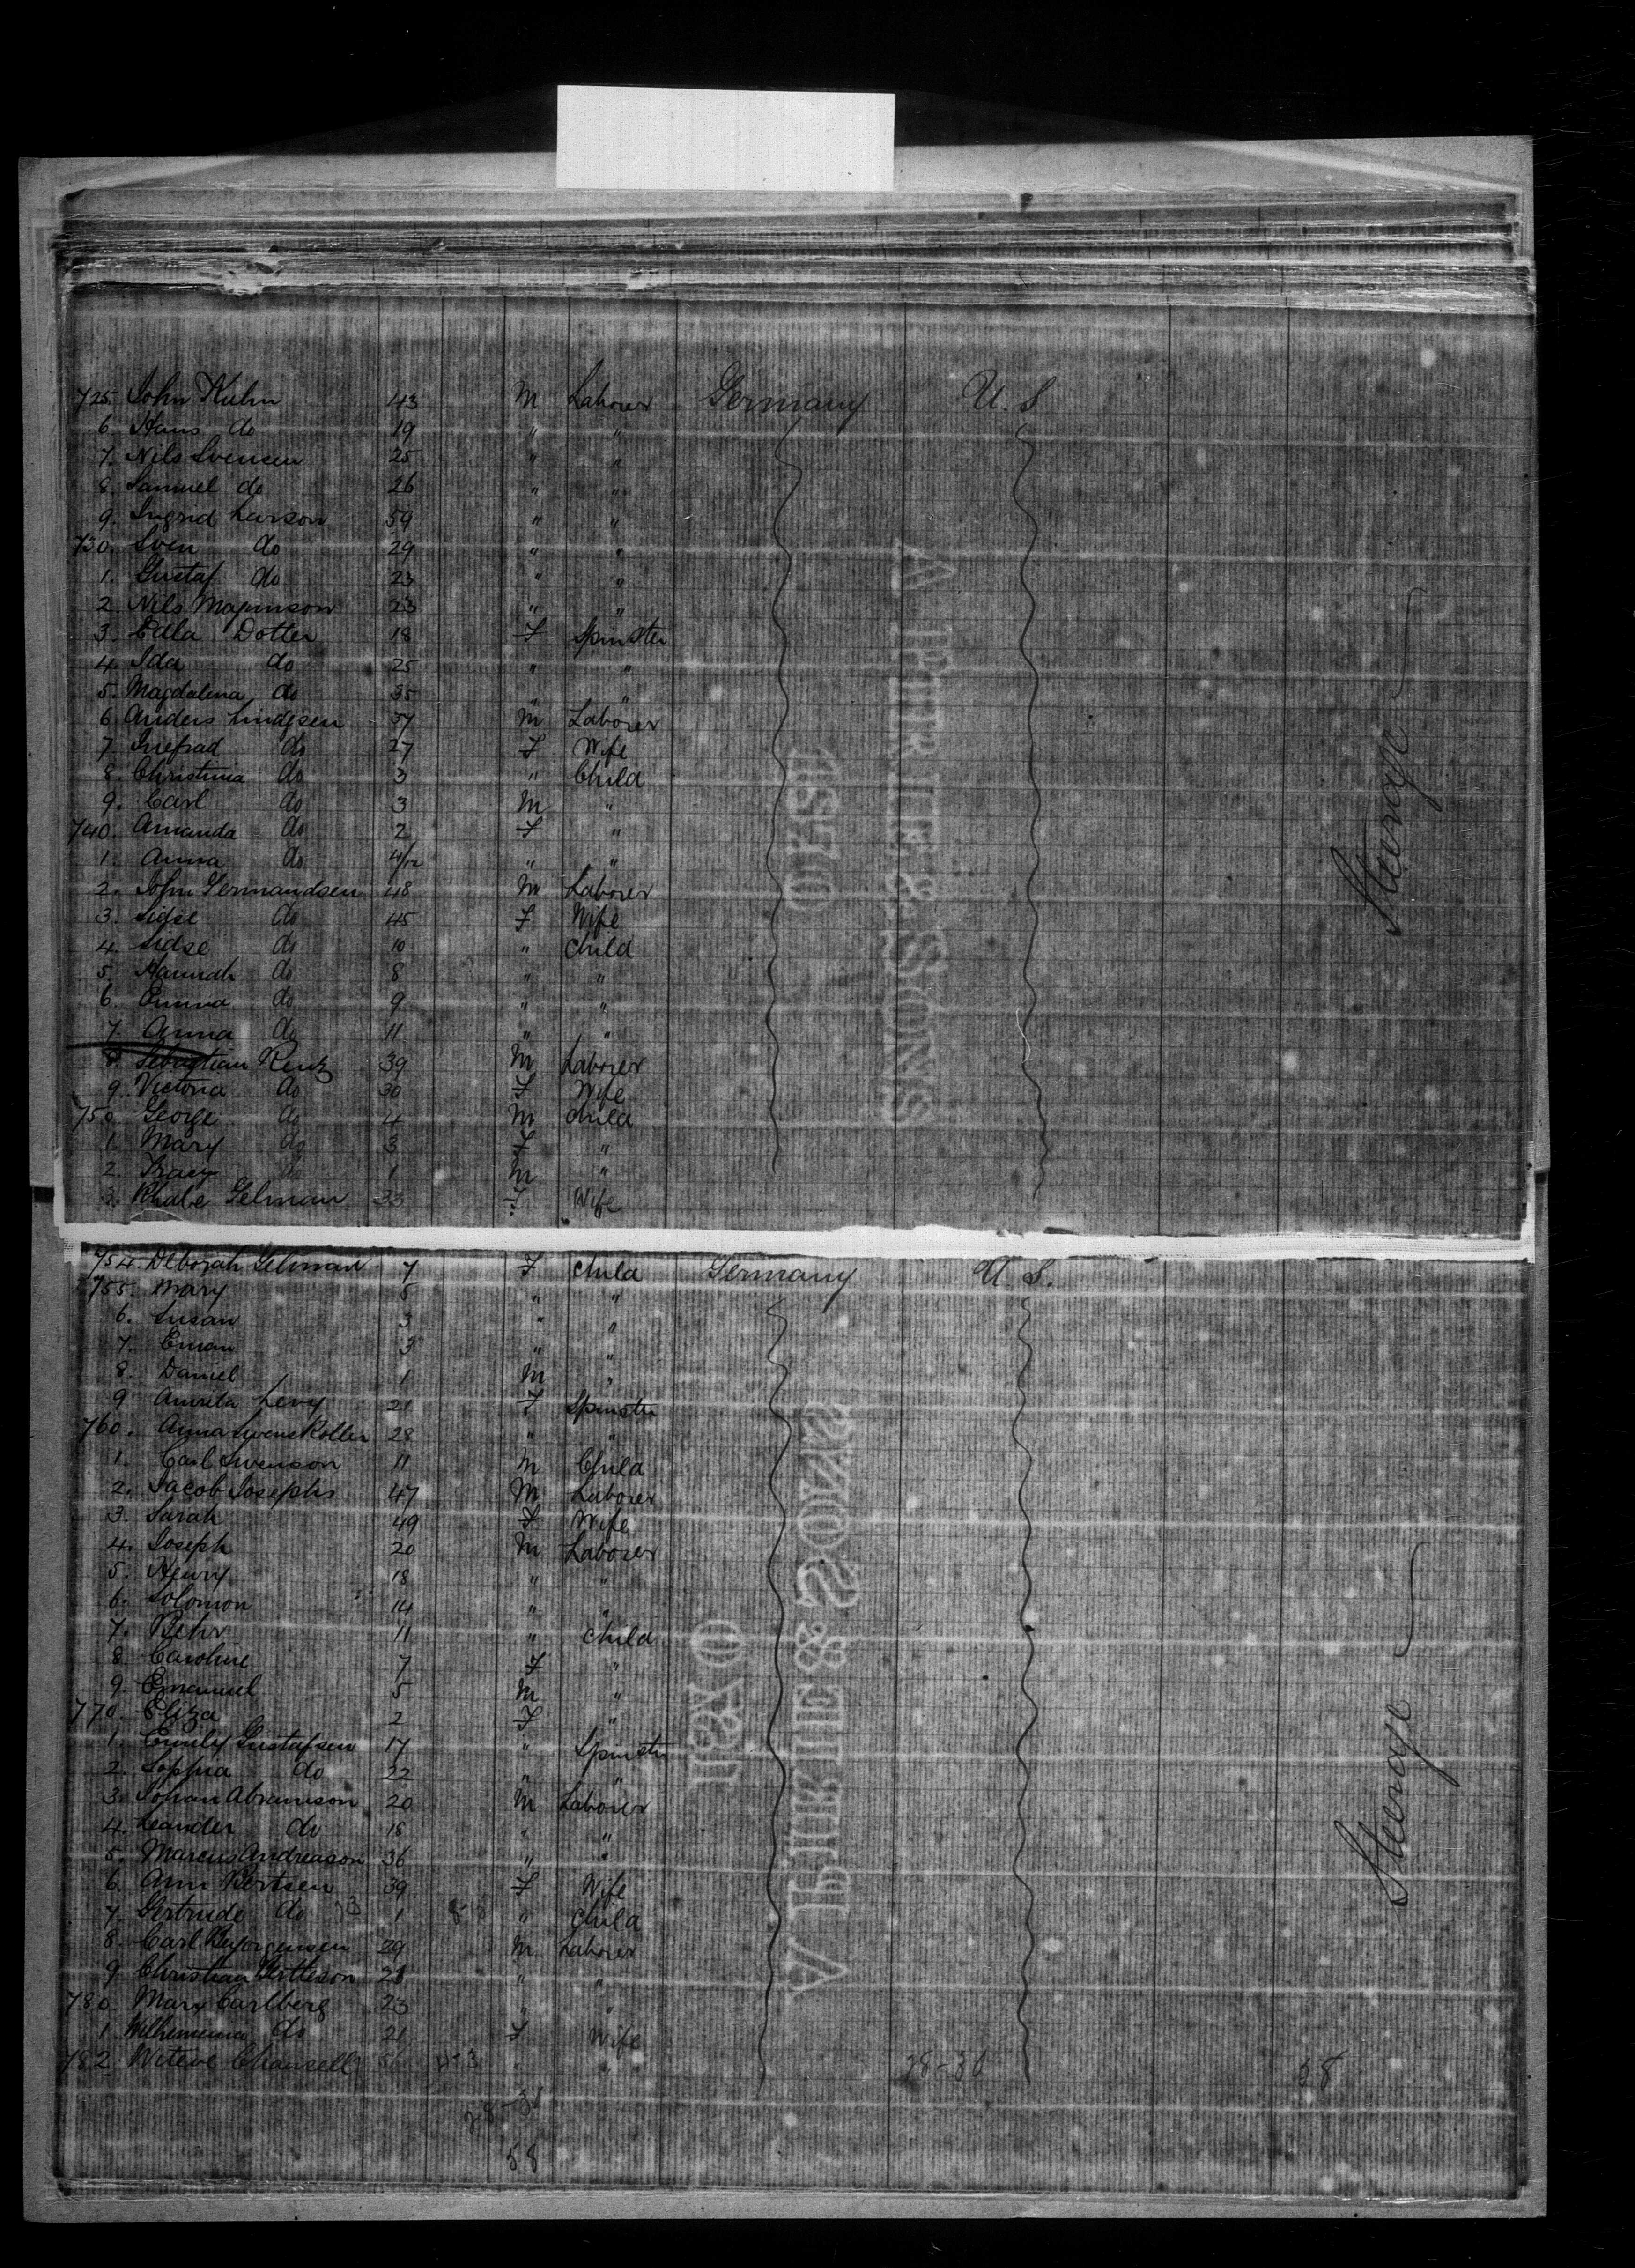 725. John Kuhn 43 M Laborer Germany U. S
6. Hans do 19 " "
7. Nils Svensen 25 " "
8. Samuel do 26 " "
9. Ingrid Larson 59 " "
730. Sven do 29 " "
1. Gustaf do 23 " "
2. Nils Magnuson 23 " "
3. Edla Dotter 18 F Spinster
4. Ida do 25 " "
5. Magdalena do 35 " "
6 Anders Lindgsen 37 M Laborer
7. do 27 F Wife
8. Christina do 3 " Child
9. Carl do 3 M "
740. Amanda do 2 F "
1. Anna do 4/12 " "
2. John Germandsen 48 M Laborer
3. Sidse do 45 F Wife
4. Sidse do 10 " Child
5. Hannah do 8 " "
6. Emma do 9 " "
7. Anna do 11 " "
8. Sebastian Rentz 39 M Laborer
9. Victoria do 30 F Wife
750. George do 4 M Child
1. Mary do 3 F "
2. Tracy do 1 M "
3. Rhabe Gelman 33 F Wife
Steerage
754. Deborah Gelman 7 F Child Germany U. S.
755. Mary 5 " "
6. Susan 3 " "
7. Eman 3 " "
8. Daniel 1 M "
9 Amelia Levy 21 F Spinster
760. Anna Swenskotter 28 " "
1. Carl Swenson 11 M Child
2. Jacob Josephs 47 M Laborer
3. Sarah 49 F Wife
4. Joseph 20 M Laborer
5. Henry 18 " "
6. Solomon 14 " "
7. Behr 11 " Child
8. Caroline 7 F "
9. Emanuel 5 M "
770. Eliza 2 F "
1. Emily Gustafsen 17 " Spinster
2. Sophia do 22 " "
3. Johan Abramson 20 M Laborer
4. Leander do 18 " "
5. Marcus Andreason 36 " "
6. Ann Bertsen 39 F Wife
7. Gertrude do 1 " Child
8. Carl 29 M Laborer
9 Christian 28 " "
780. Marx Carlberg 23 " "
1. Wilhemina do 21 F Wife
782 Chansell 56 " "
28-30 58
28-30
58
Steerage
A PIRIE & SONS
A PIRIE & SONS